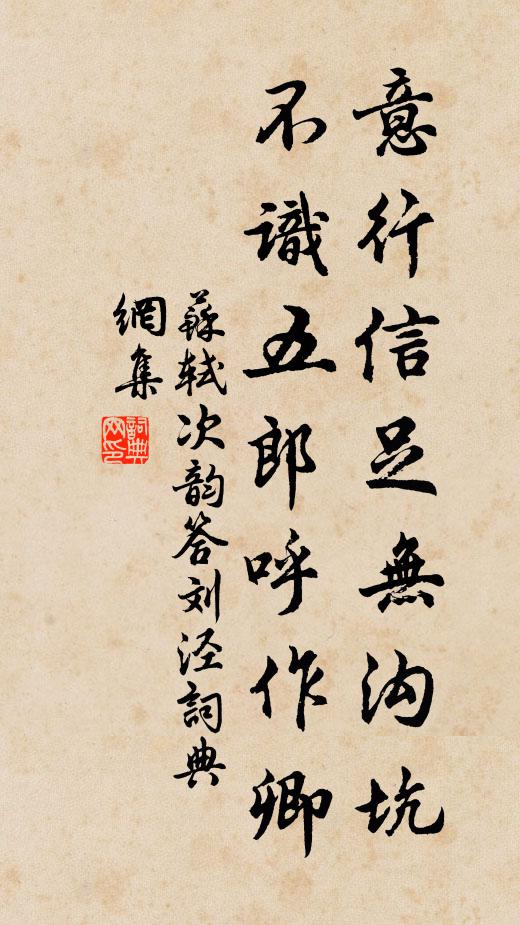 意行信足無沟坑
不識五郎呼作卿
蘇轼次韵答刘泾詞典
網集
詞典
网印